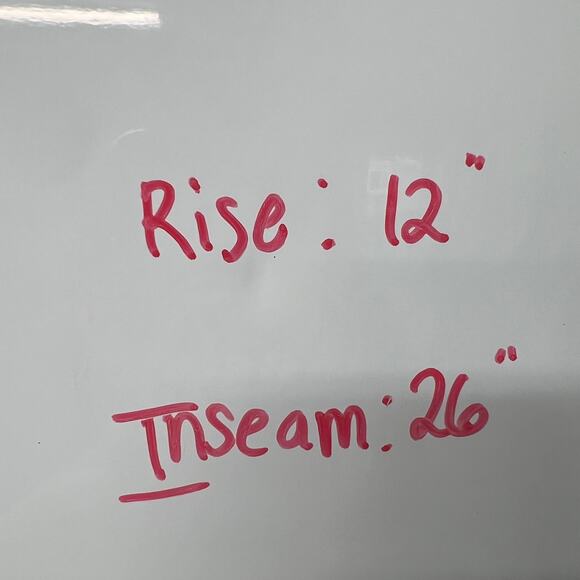 Rise: 12"
Inseam: 26"